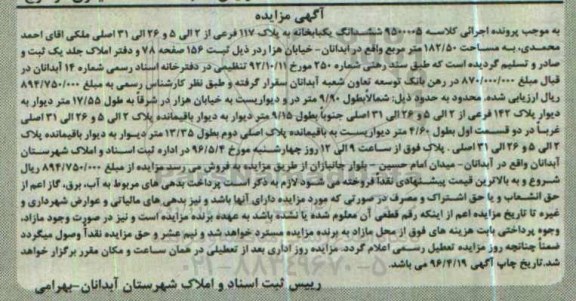 آگهی مزایده
به موجب پرونده اجرائی کلاسه ۹۵۰۰۰۰۵ ششدانگ یکبابخانه به پلاک ۱۱۷ فرعی از ۲ الی ۵ و ۲۶ الی ۳۱ اصلی ملکی آقای احمد
محمدی، به مساحت ۱۸۲/۵۰ متر مربع واقع در آبدانان - خیابان هزار در ذیل ثبت ۱۵۶ صفحه ۷۸ و دفتر املاک جلد یک ثبت و
صادر و تسلیم گردیده است که طبق سند رهنی شماره ۲۵۰ مورخ ۹۲/۱۰/۱۱ تنظیمی در دفترخانه اسناد رسمی شماره ۱۴ آبدانان در
قبال مبلغ ۸۷۰/۰۰۰/۰۰۰ در رهن بانک توسعه تعاون شعبه آبدانان قرار گرفته و طبق نظر کارشناس رسمی به مبلغ ۸۹۴/۷۵۰/۰۰۰
ریال ارزیابی شده، محدود به حدود ذیل: شمالاً بطول ۹/۹۰ متر در و دیواریست به خیابان هزار در شرقاً به طول ۱۷/۵۵ متر دیوار به
دیوار پلاک ۱۴۲ فرعی از ۲ الی ۵ و ۲۶ الی ۳۱ اصلی جنوباً بطول ۹/۱۵ متر دیوار به دیوار باقیمانده پلاک ۲ الی ۵ و ۲۶ الی ۳۱ اصلی
غرباً در دو قسمت اول بطول ۴/۶۰ متر دیواریست به باقیمانده پلاک اصلی دوم بطول ۱۳/۳۵ متر دیوار به دیوار باقیمانده پلاک
۲ الی ۵ و ۲۶ الی ۳۱ اصلی . پلاک فوق از ساعت ۹ الی ۱۲ روز چهارشنبه مورخ ۹۶/۵/۴ در اداره ثبت اسناد و املاک شهرستان
آبدانان واقع در آبدانان - میدان امام حسین - بلوار جانبازان از طریق مزایده به فروش می رسد مزایده از مبلغ ۸۹۴/۷۵۰/۰۰۰ ریال
شروع و به بالاترین قیمت پیشنهادی نقداً فروخته می شود لازم به ذکر است پرداخت بدهی های مربوط به آب، برق، گاز اعم از
حق انشعاب و یا حق اشتراک و مصرف در صورتی که مورد مزایده دارای آنها باشد و نیز بدهی های مالیاتی و عوارض شهرداری و
غیره تا تاریخ مزایده اعم از اینکه رقم قطعی آن معلوم شده یا نشده باشد به عهده برنده مزایده است و نیز در صورت وجود مازاد،
وجوه پرداختی بابت هزینه های فوق از محل مازاد به برنده مزایده مسترد خواهد شد و نیم عشر و حق مزایده نقداً وصول میگردد
ضمناً چنانچه روز مزایده تعطیل رسمی اعلام گردد، مزایده روز اداری بعد از تعطیلی در همان ساعت و مکان مقرر برگزار خواهد
شد. تاریخ چاپ آگهی ۹۶/۴/۱۹ می باشد.
رییس ثبت اسناد و املاک شهرستان آبدانان - بهرامی
۰۲۱-۸۸۳۴۹۶۷۰-۵